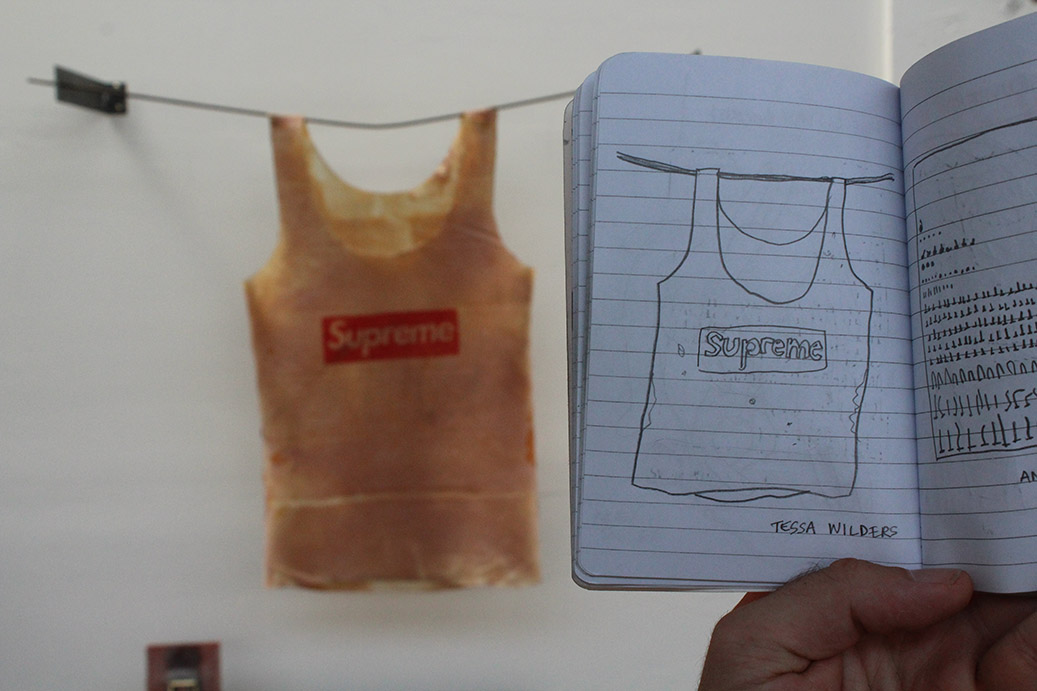 Supreme
Supreme
TESSA WILDERS
AN